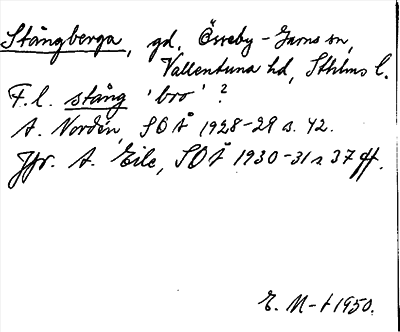 Stångberga, gd, Össeby-Garns sn,
Vallentuna hd, Sthlms l.
F.l. stång 'bro'?
A. Nordén, SOÅ 1928-29 s. 42.
Jfr. A. Eile, SOÅ 1930-31 s 37 ff.
E. M-t 1950.